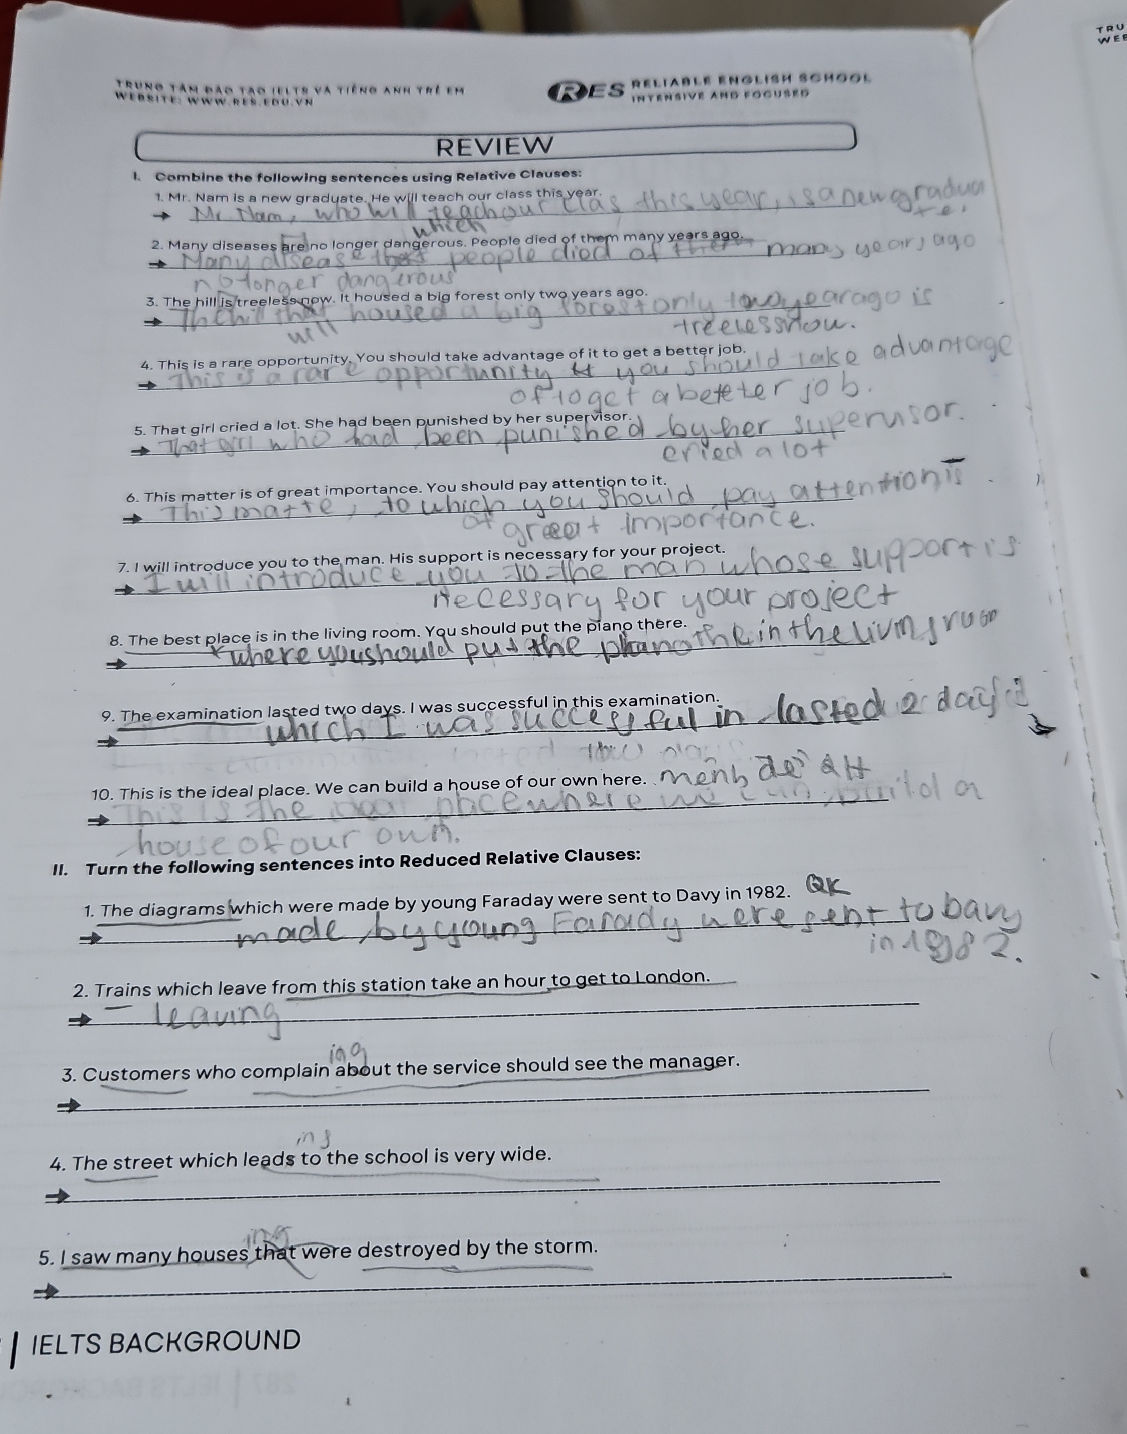 TRUNG TÂM ĐÀO TẠO IELTS VÀ TIẾNG ANH TRẺ EM
WEBSITE: WWW.RES.EDU.VN
RES RELIABLE ENGLISH SCHOOL
INTENSIVE AND FOCUSED
TRU
WEB
REVIEW
I. Combine the following sentences using Relative Clauses:
1. Mr. Nam is a new graduate. He will teach our class this year.
Mr Nam, who will teach our clas this year, is a new gradua
te.
which
2. Many diseases are no longer dangerous. People died of them many years ago.
Many disease people died of many years ago
no longer dangerous
3. The hill is treeless now. It housed a big forest only two years ago.
that housed a big forest only two year ago is
will treeless now.
4. This is a rare opportunity. You should take advantage of it to get a better job.
This is a rare opportunity you should take advantage
of to get a job.
5. That girl cried a lot. She had been punished by her supervisor.
That girl who had been punished by her supervisor.
cried a lot
6. This matter is of great importance. You should pay attention to it.
This matte, to which you should pay attention is
of great importance.
7. I will introduce you to the man. His support is necessary for your project.
I will introduce you to the man whose support is
necessary for your project
8. The best place is in the living room. You should put the piano there.
where you should put the in the living room
9. The examination lasted two days. I was successful in this examination.
which I was successful in lasted 2 days
10. This is the ideal place. We can build a house of our own here. mệnh đề
This is the place where we can build a
house of our own.
II. Turn the following sentences into Reduced Relative Clauses:
1. The diagrams which were made by young Faraday were sent to Davy in 1982. QK
made by young Farady were sent to Davy
in 1982.
2. Trains which leave from this station take an hour to get to London.
– leaving
ing
3. Customers who complain about the service should see the manager.
ing
4. The street which leads to the school is very wide.
ing
5. I saw many houses that were destroyed by the storm.
IELTS BACKGROUND